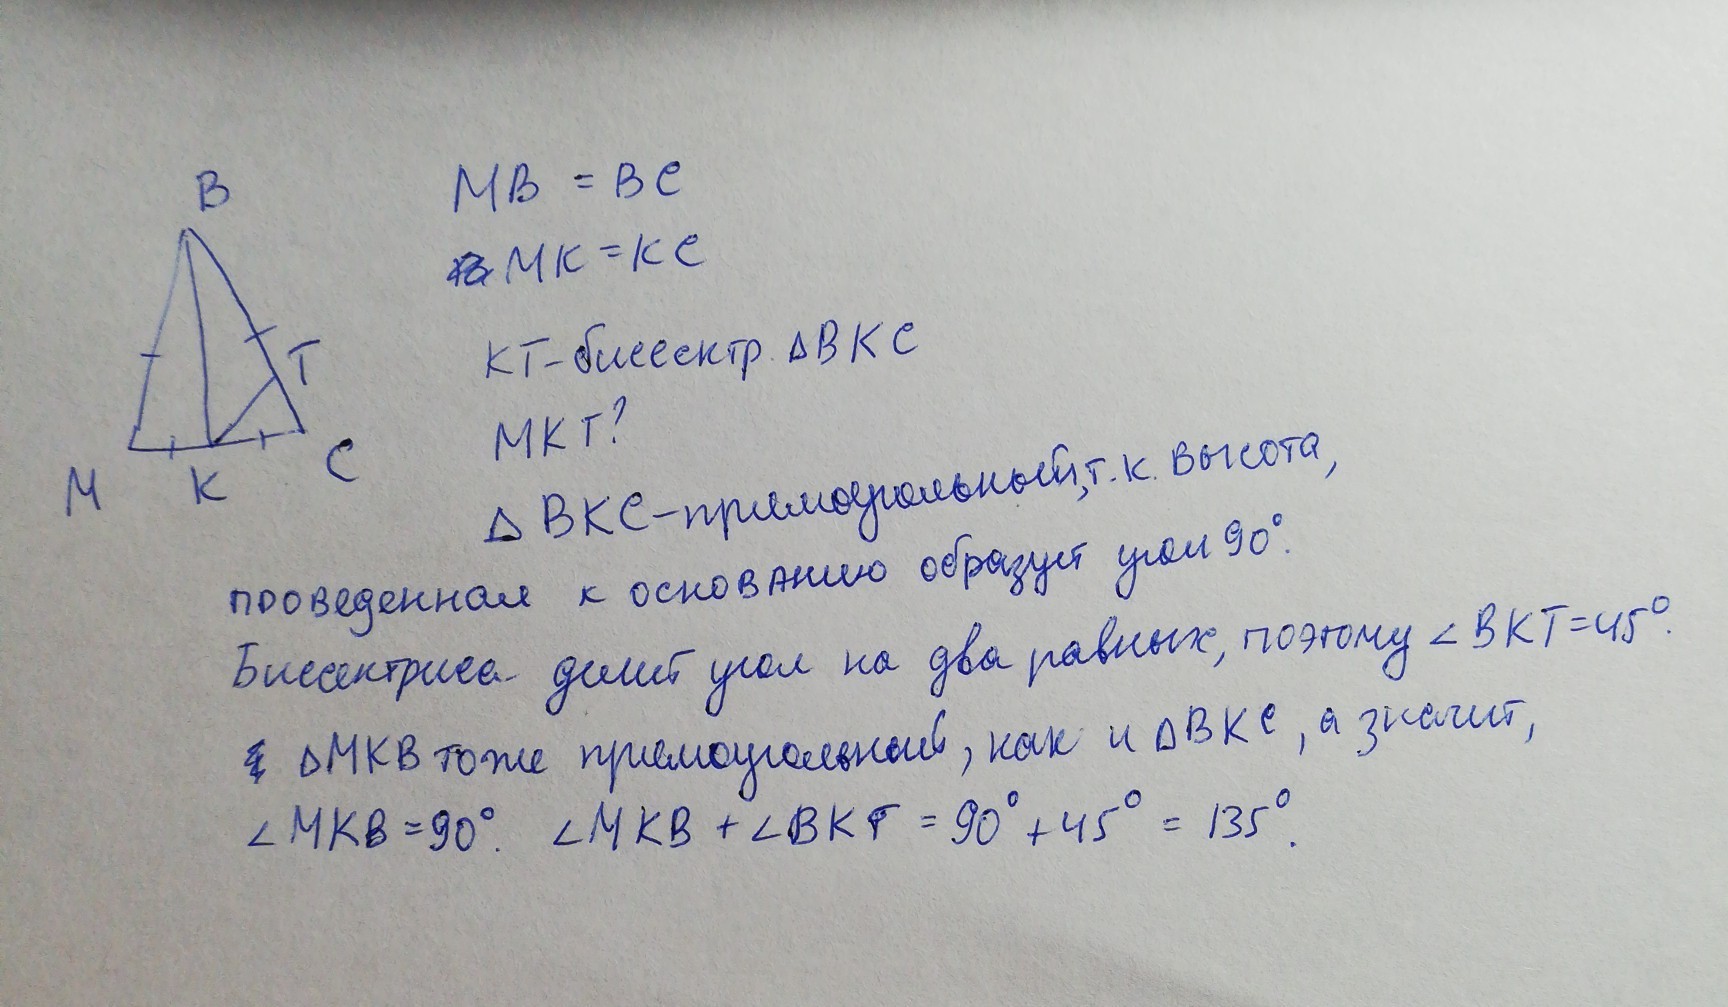 B
MB = BC
MK = KC
T
KT - биссектр. △BKC
MKT?
M K C
△ BKC - прямоугольный, т.к. высота,
проведенная к основанию образует угол 90°.
Биссектриса делит угол на два равных, поэтому ∠BKT=45°.
△MKB тоже прямоугольный, как и △BKC, а значит,
∠MKB=90°. ∠MKB + ∠BKT = 90° + 45° = 135°.